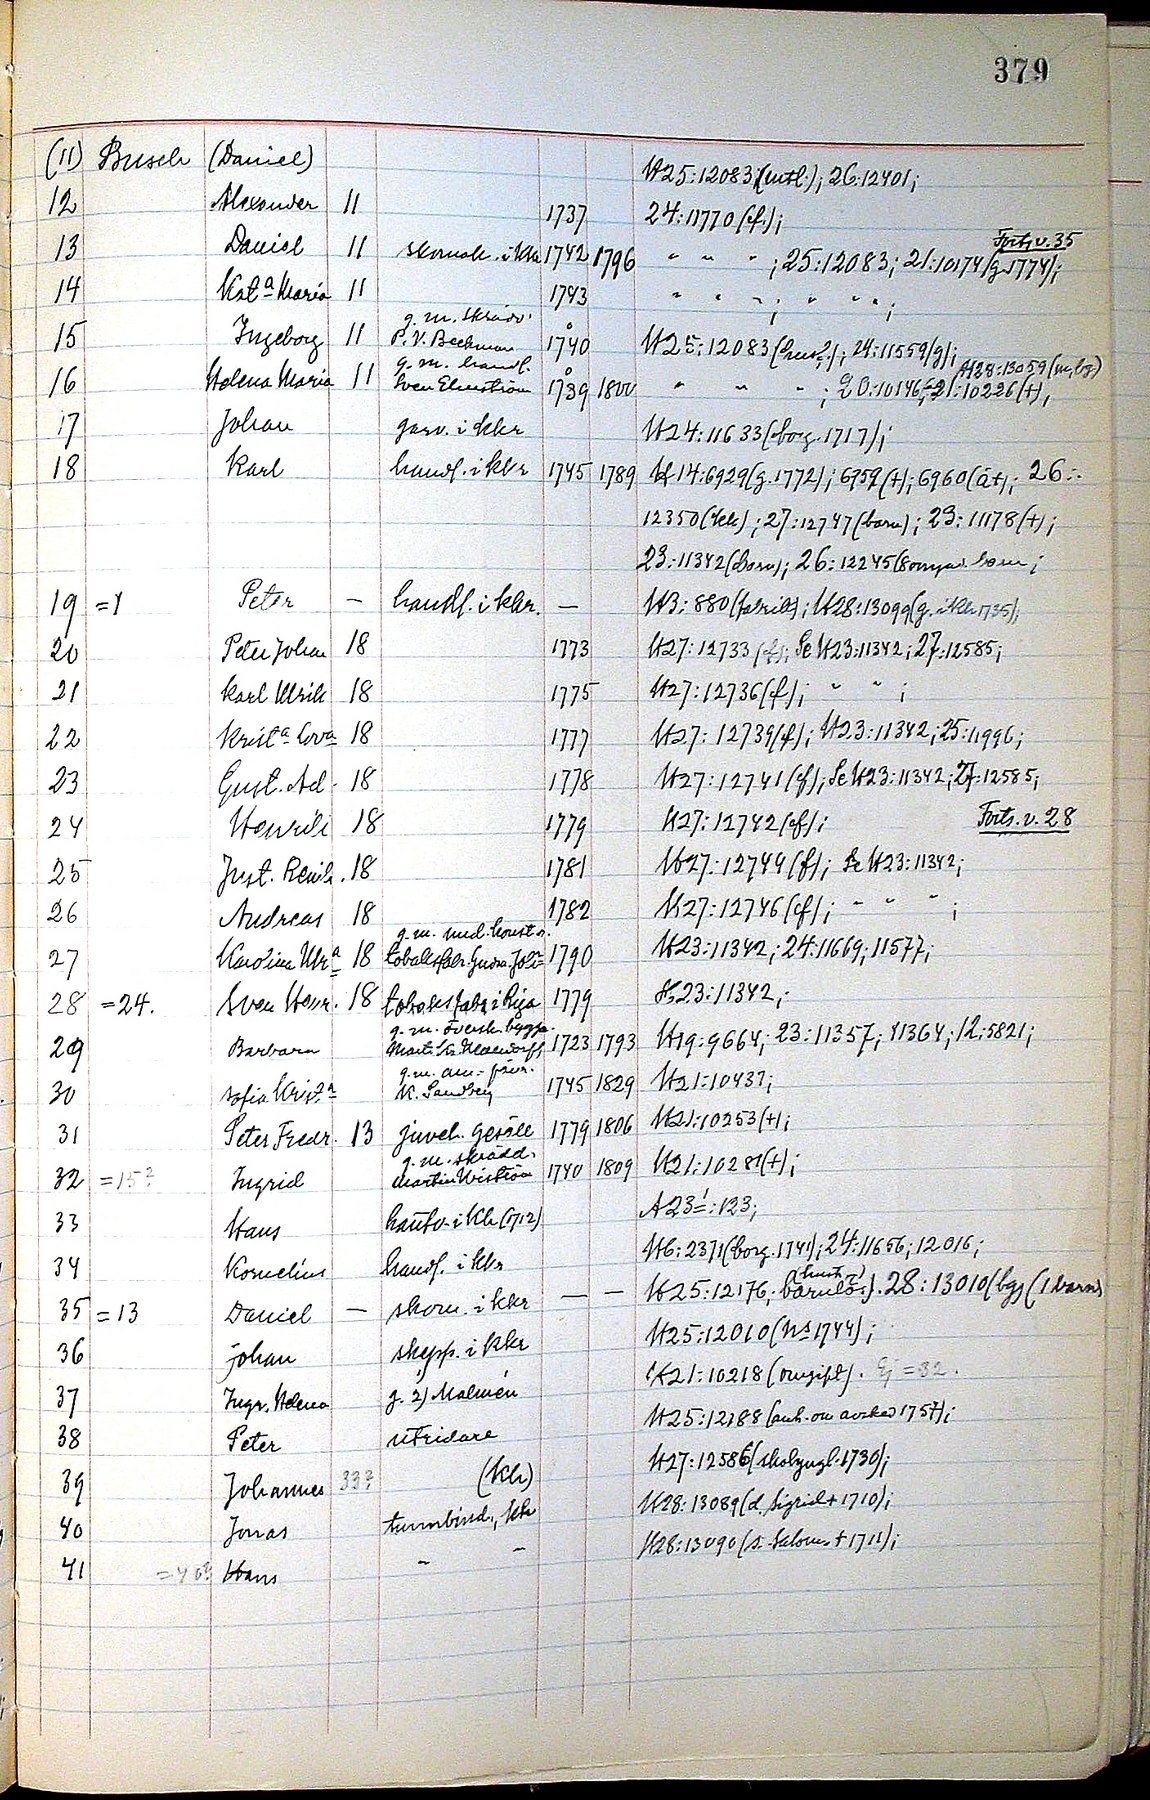 379
(11) Busch (Daniel) H25:12083; 26:12401;
12 Alexander 11 1737 24:11770 (f.);
Forts. v. 35
13 Daniel 11 skomak. i Kkr 1742 1796 " " " ; 25:12083; 21:10174 (g. 1774);
14 Kat:a Maria 11 1743 " " " ; " " " ;
g. m. skräd.
15 Ingeborg 11 P. V. Beckman 1740 H25:12083; 24:11559 (g);
g. m. handl. H28:13059
16 Helena Maria 11 Sven 1739 1800 " " " ; 20:10146; 21:10226 (+);
17 Johan garv. i Kkr H24:11633 (borg. 1717);
18 Karl handl. i Kkr 1745 1789 H14:6929 (g. 1772); 6959 (+); 6960 (ä+); 26:
12350; 27:12747 (barn); 23:11178 (+);
23:11342 (barn); 26:12245
19 =1 Peter — handl. i Kkr. — H3:880 (fabrik); H28:13099 (g. i Kkr 1735);
20 Peter Johan 18 1773 H27:12733 (f); Se H23:11342; 27:12585;
21 Karl Ulrik 18 1775 H27:12736 (f); " " ;
22 Krist:a Lova 18 1777 H27:12739 (f); H23:11342; 25:11996;
23 Gust. Ad. 18 1778 H27:12741 (f); Se H23:11342; 27:12585;
24 Henrik 18 1779 H27:12742 (f); Forts. v. 28
25 Just. Reinh. 18 1781 H27:12744 (f); Se H23:11342;
26 Andreas 18 1782 H27:12746 (f); " " " ;
g. m.
27 Karolina Ulr:a 18 1790 H23:11342; 24:11669; 11577;
28 =24. Sven Henr. 18 tobaksfabr. i Riga 1779 H23:11342;
g. m.
29 Barbara 1723 1793 H19:9664; 23:11357; 11364; 12:5821;
g. m.
30 Sofia Krist:a K. Sandberg 1745 1829 H21:10437;
31 Peter Fredr. 13 juvel. gesäll 1779 1806 H21:10253 (+);
g. m. skrädd.
32 =15? Ingrid Martin Wiström 1740 1809 H21:10281 (+);
33 Hans hantv. i Kkr (1712) A23:1:123;
34 Kornelius handl. i Kkr H6:2371 (borg. 1741); 24:11656; 12016;
35 =13 Daniel — skom. i Kkr — — H25:12176; barnlös. 28:13010 (1 barn)
36 Johan skepp. i Kkr H25:12010 (1744);
37 Ingr. Helena g. 2) Malmén H21:10218 (omgift). Ej =32.
38 Peter utridare H25:12188 (anh. om avsked 1757);
39 Johannes 33? (Kkr) H27:12586 (1730);
40 Jonas tunnbind., Kkr H28:13089 (d. Sigrid + 1710);
41 =40? Hans " " H28:13090 (+ 1711);